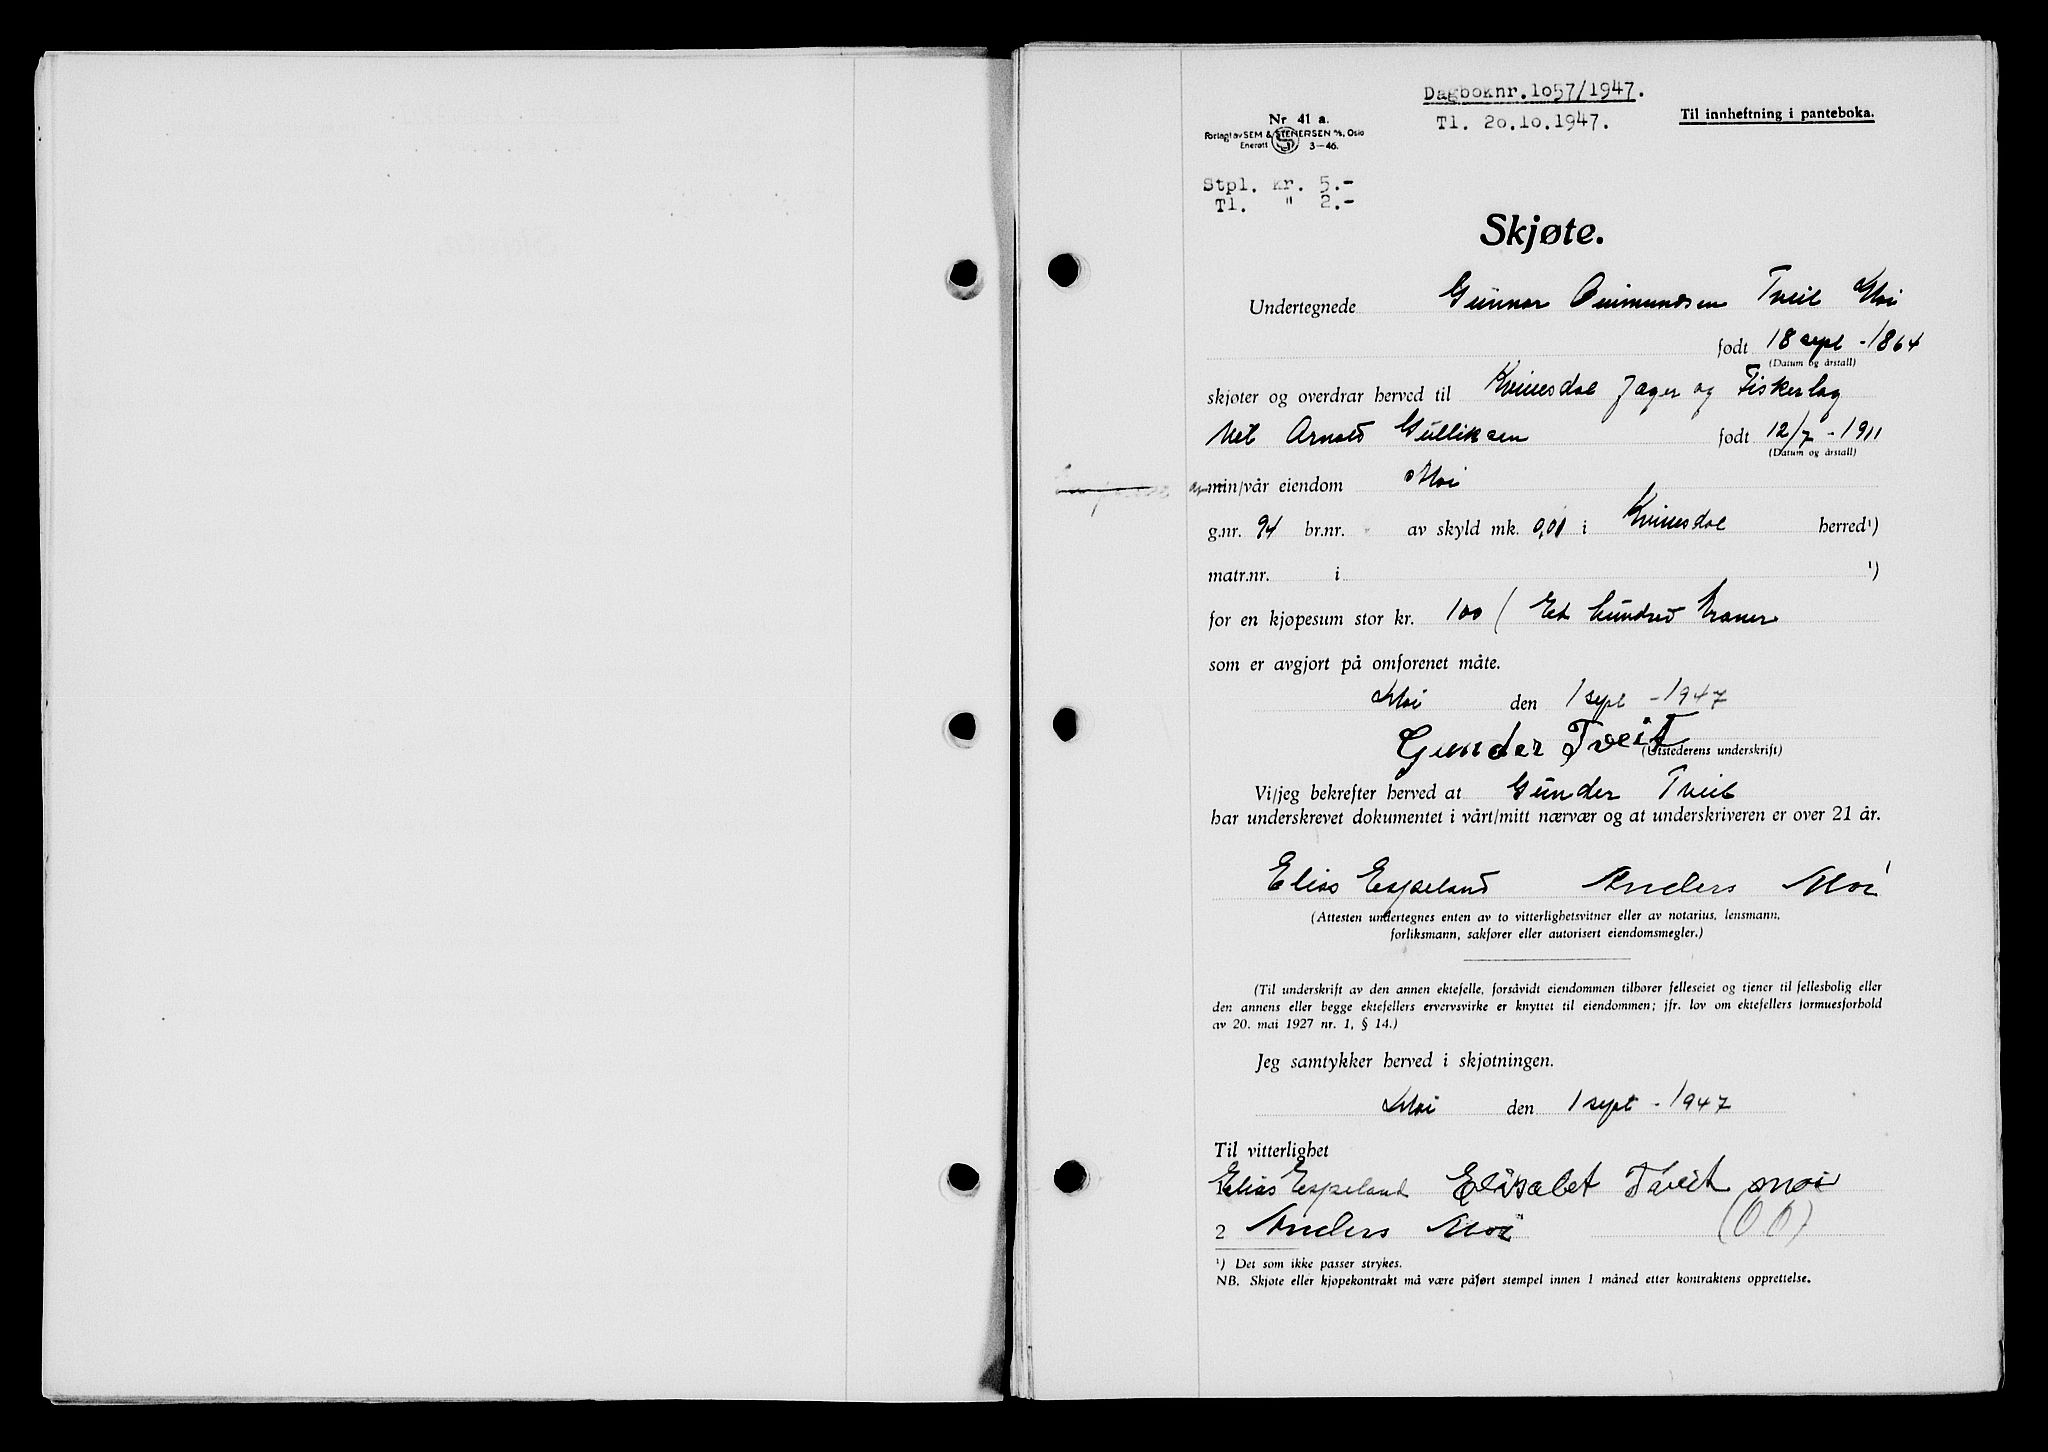 Dagboknr. 1057/1947.
Tl. 20.10.1947.
Til innheftning i panteboka.
Nr. 41 a.
Forlagt av SEM & STENERSEN A/S, Oslo
Enerett 3-46.
Stpl. kr. 5.-
Tl. " 2.-
Skjøte.
Undertegnede Gunnar Tveit Moi
født 18 sept - 1864
(Datum og årstall)
skjøter og overdrar herved til Kvinesdal Jager og Fiskerlag
Ved Arnold Gulliksen født 12/7 - 1911
(Datum og årstall)
min/vår eiendom Moi
g.nr. 94 br.nr. av skyld mk. 0,01 i Kvinesdal herred¹)
matr.nr. i ¹)
for en kjøpesum stor kr. 100 ( Et hundred kroner
som er avgjort på omforenet måte.
Moi den 1 sept - 1947
Gunder Tveit
(Utstederens underskrift)
Vi/jeg bekrefter herved at Gunder Tveit
har underskrevet dokumentet i vårt/mitt nærvær og at underskriveren er over 21 år.
Elias Espeland Anders Moi
(Attesten undertegnes enten av to vitterlighetsvitner eller av notarius, lensmann,
forliksmann, sakfører eller autorisert eiendomsmegler.)
(Til underskrift av den annen ektefelle, forsåvidt eiendommen tilhører felleseiet og tjener til fellesbolig eller
den annens eller begge ektefellers ervervsvirke er knyttet til eiendommen; jfr. lov om ektefellers formuesforhold
av 20. mai 1927 nr. 1, § 14.)
Jeg samtykker herved i skjøtningen.
Moi den 1 sept - 1947
Til vitterlighet
1 Elias Espeland Elisabet Tveit moi
2 Anders Moi
¹) Det som ikke passer strykes.
NB. Skjøte eller kjøpekontrakt må være påført stempel innen 1 måned etter kontraktens opprettelse.